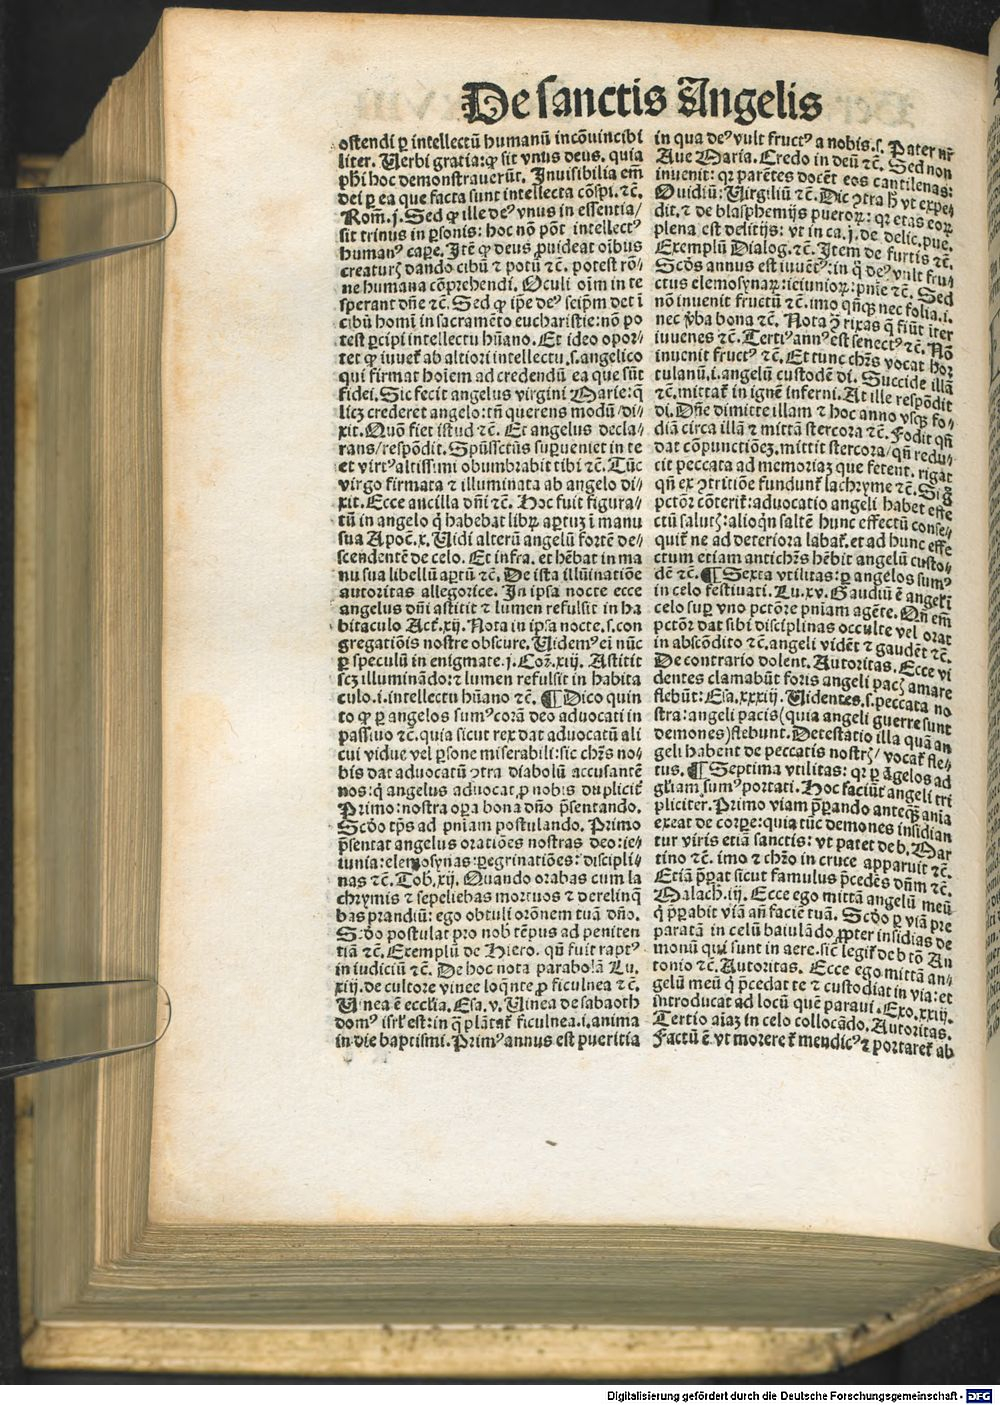 De sanctis Angelis
ostendi ꝑ intellectũ humanũ incõuincibi
liter. Uerbi gratia: ꝙ sit vnus deus. quia
phi hoc demonstrauerũt. Inuisibilia em̃
dei ꝑ ea que facta sunt intellecta cõspi. ⁊c̃.
Rom̃. j. Sed ꝙ ille deꝰ vnus in essentia/
sit trinus in ꝑsonis: hoc nõ põt intellectꝰ
humanꝰ caꝑe. Itẽ ꝙ deus ꝓuideat oĩbus
creaturꝭ dando cibũ ⁊ potũ ⁊c̃. potest rõ⸗
ne humana cõprehendi. Oculi oĩm in te
sperant dñe ⁊c̃. Sed ꝙ ip̃e deꝰ seip̃m det ĩ
cibũ homĩ in sacramẽto eucharistie: nõ po
test ꝑcipi intellectu hũano. Et ideo opor⸗
tet ꝙ iuuet᷑ ab altiori intellectu .s. angelico
qui firmat hoĩem ad credendũ ea que sũt
fidei. Sic fecit angelus virgini Marie: q̃
licꝫ crederet angelo: tñ querens modũ/di⸗
xit. Quõ fiet istud ⁊c̃. Et angelus decla⸗
rans/respõdit. Spũssctũs suꝑueniet in te
et virtꝰ altissimi obumbrabit tibi ⁊c̃. Tũc
virgo firmata ⁊ illuminata ab angelo di⸗
xit. Ecce ancilla dñi ⁊c̃. Hoc fuit figura⸗
tũ in angelo q̃ habebat libꝝ aꝑtuꝫ ĩ manu
sua Apoc̃. x. Uidi alterũ angelũ fortẽ de⸗
scendentẽ de celo. Et infra. et hẽbat in ma
nu sua libellũ aꝑtũ ⁊c̃. De ista illũinatiõe
autoritas allegorice. In ipsa nocte ecce
angelus dñi astitit ⁊ lumen refulsit in ha
bitaculo Act᷑. xij. Nota in ipsa nocte .s. con
gregatiõis nostre obscure. Uidemꝰ ei nũc
ꝑ speculũ in enigmate. j. Coꝝ. xiij. Astitit
scꝫ illuminãdo: ⁊ lumen refulsit in habita
culo .i. intellectu hũano ⁊c̃. ¶ Dico quin
to ꝙ ꝑ angelos sumꝰ corã deo aduocati in
passiuo ⁊c̃. quia sicut rex dat aduocatũ ali
cui vidue vel ꝑsone miserabili: sic chr̃s no⸗
bis dat aduocatũ ꝯtra diabolũ accusantẽ
nos: q̃ angelus aduocat ꝓ nobis duplicit᷑
Primo: nostra oꝑa bona dño p̃sentando.
Scõo tp̃s ad pñiam postulando. Primo
p̃sentat angelus oratiões nostras deo: ie⸗
iunia: elemosynas: ꝑegrinatiões: discipli⸗
nas ⁊c̃. Tob. xij. Quando orabas cum la
chrymis ⁊ sepeliebas mortuos ⁊ derelinq̃
bas prandiũ: ego obtuli orõnem tuã dño.
Scõo postulat pro nob tẽpus ad peniten
tiã ⁊c̃. Exemplũ de Hiero. qñ fuit raptꝰ
in iudiciũ ⁊c̃. De hoc nota parabolã Lu.
xiij. de cultore vinee loq̃nte ꝓ ficulnea ⁊c̃.
Uinea ẽ eccl̃ia. Esa. v. Uinea de sabaoth
domꝰ isrł est: in q̃ plãtat᷑ ficulnea .i. anima
in die baptismi. Primꝰ annus est pueritia
in qua deꝰ vult fructꝰ a nobis .s. Pater nr̃
Aue Maria. Credo in deũ ⁊c̃. Sed non
inuenit: qꝛ parẽtes docẽt eos cantilenas:
Ouidiũ: Uirgiliũ ⁊c̃. Dic ꝯtra ꝙ vt expe⸗
dit. ⁊ de blasphemijs pueroꝝ: qꝛ etas eoꝝ
plena est delitijs: vt in ca. j. de delic. pue.
Exemplũ Dialog. ⁊c̃. Item de furtis ⁊c̃.
Scõs annus est iuuẽtꝰ: in q̃ deꝰ vult fru⸗
ctus elemosynaꝝ: ieiunioꝝ: pñie ⁊c̃. Sed
nõ inuenit fructũ ⁊c̃. imo qñqꝫ nec folia .i.
nec v̾ba bona ⁊c̃. Nota ꝯ̃ rixas q̃ fiũt iter
iuuenes ⁊c̃. Tertiꝰ annꝰ est senectꝰ ⁊c̃. Nõ
inuenit fructꝰ ⁊c̃. Et tunc chr̃s vocat hor
tulanũ .i. angelũ custodẽ di. Succide illã
⁊c̃. mittat᷑ in ignẽ inferni. At ille respõdit
di. Dñe dimitte illam ⁊ hoc anno vsqꝫ fo⸗
diã circa illã ⁊ mittã stercora ⁊c̃. Fodit qñ
dat cõpunctiõeꝫ. mittit stercora/qñ redu⸗
cit peccata ad memoriaꝫ que fetent. rigat
qñ ex ꝯtritiõe fundunt᷑ lachryme ⁊c̃. Si ꝗ̃
pctõr cõterit᷑: aduocatio angeli habet effe
ctũ salutꝭ: alioq̃n saltẽ hunc effectũ conse⸗
quit᷑ ne ad deteriora labat᷑. et ad hunc effe
ctum etiam antichr̃s hẽbit angelũ custo⸗
dẽ ⁊c̃. ¶ Sexta vtilitas: ꝑ angelos sumꝰ
in celo festiuati. Lu. xv. Gaudiũ ẽ angelꝭ ĩ
celo suꝑ vno pctõre pñiam agẽte. Qñ em̃
pctõr dat sibi disciplinas occulte vel orat
in abscõdito ⁊c̃. angeli vidẽt ⁊ gaudẽt ⁊c̃.
De contrario dolent. Autoritas. Ecce vi
dentes clamabũt foris angeli pacꝭ amare
flebũt: Esa. xxxiij. Uidentes .s. peccata no
stra: angeli pacis (quia angeli guerre sunt
demones) flebunt. Detestatio illa quã an
geli habent de peccatis nostrꝭ/ vocat᷑ fle⸗
tus. ¶ Septima vtilitas: qꝛ ꝑ ãgelos ad
gl̃iam sumꝰ portati. Hoc faciũt angeli tri
pliciter. Primo viam p̃ꝑando anteqꝫ̃ aĩa
exeat de corꝑe: quia tũc demones insidian
tur viris etiã sanctis: vt patet de b. Mar
tino ⁊c̃. imo ⁊ chr̃o in cruce apparuit ⁊c̃.
Etiã p̃ꝑat sicut famulus p̃cedẽs dñm ⁊c̃.
Malach. iij. Ecce ego mittã angelũ meũ
q̃ p̃ꝑabit viã añ faciẽ tuã. Scõo ꝑ viã pre
paratã in celũ baiulãdo ꝓpter insidias de
monũ qui sunt in aere. sic̃ legit᷑ de b̃tõ An
tonio ⁊c̃. Autoritas. Ecce ego mittã an⸗
gelũ meũ q̃ p̃cedat te ⁊ custodiat in via: et
introducat ad locũ quẽ paraui. Exo. xxiij.
Tertio aĩaꝫ in celo collocãdo. Autoritas.
Factũ ẽ vt morereт᷑ mendicꝰ ⁊ portaret᷑ ab
Digitalisierung gefördert durch die Deutsche Forschungsgemeinschaft - DFG